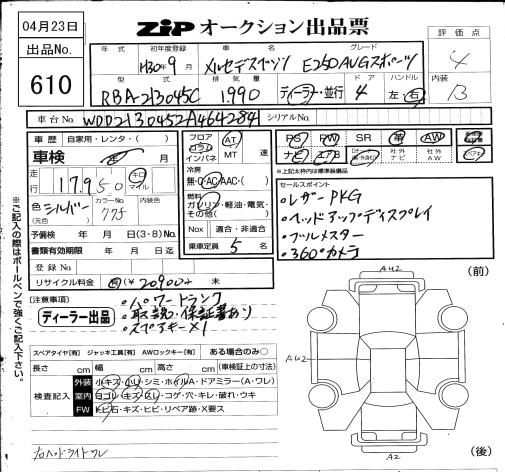 04月23日
ZIP オークション出品票
出品No.
610
評価点
4
内装
B
年式 初年度登録 車名 グレード
H30年9月 メルセデスベンツ E250AVGスポーツ
型式 排気量 ドア ハンドル
RBA-213045C 1,990 ディーラー・並行 4 左・右
車台No. WDD2130452A464284 シリアルNo.
車歴 自家用・レンタ・( )
車検
走行 17,950 キロ マイル
色 (元色) シルバー カラーNo. 775 内装色
予備検 年 月 日 (3・8)・No.
書類有効期限 年 月 日迄
登録No.
リサイクル料金 有(¥20900) 未
フロア コラム インパネ AT MT 速
冷房 無・C・AC・AAC・( )
燃料 ガソリン・軽油・電気・その他( )
Nox 適合・非適合
乗車定員 5 名
PS PW SR 革 AW
ナビ エアB 社外ナビ 社外AW
※上記太枠内は標準装備品
セールスポイント
・レザーPKG
・ヘッドアップディスプレイ
・フルスメター
・360°カメラ
※ご記入の際はボールペンで強くご記入下さい。
[注意事項]
ディーラー出品
・パワートランク
・取説・保証書あり
・スペアキー×1
スペアタイヤ[有] ジャッキ工具[有] AWロックキー[有] ある場合のみ○
長さ cm 幅 cm 高さ cm (車検証上の寸法)
検査記入
外装 小キズ・小凹・シミ・ホイルA・ドアミラー(A・ワレ)
室内 ヨゴレ・キズ・スレ・コゲ・穴・キレ・破れ・ウキ
FW トビ石・キズ・ヒビ・リペア跡・X要ス
右ヘッドライトワレ
AU2
(前)
AU2
A2
(後)